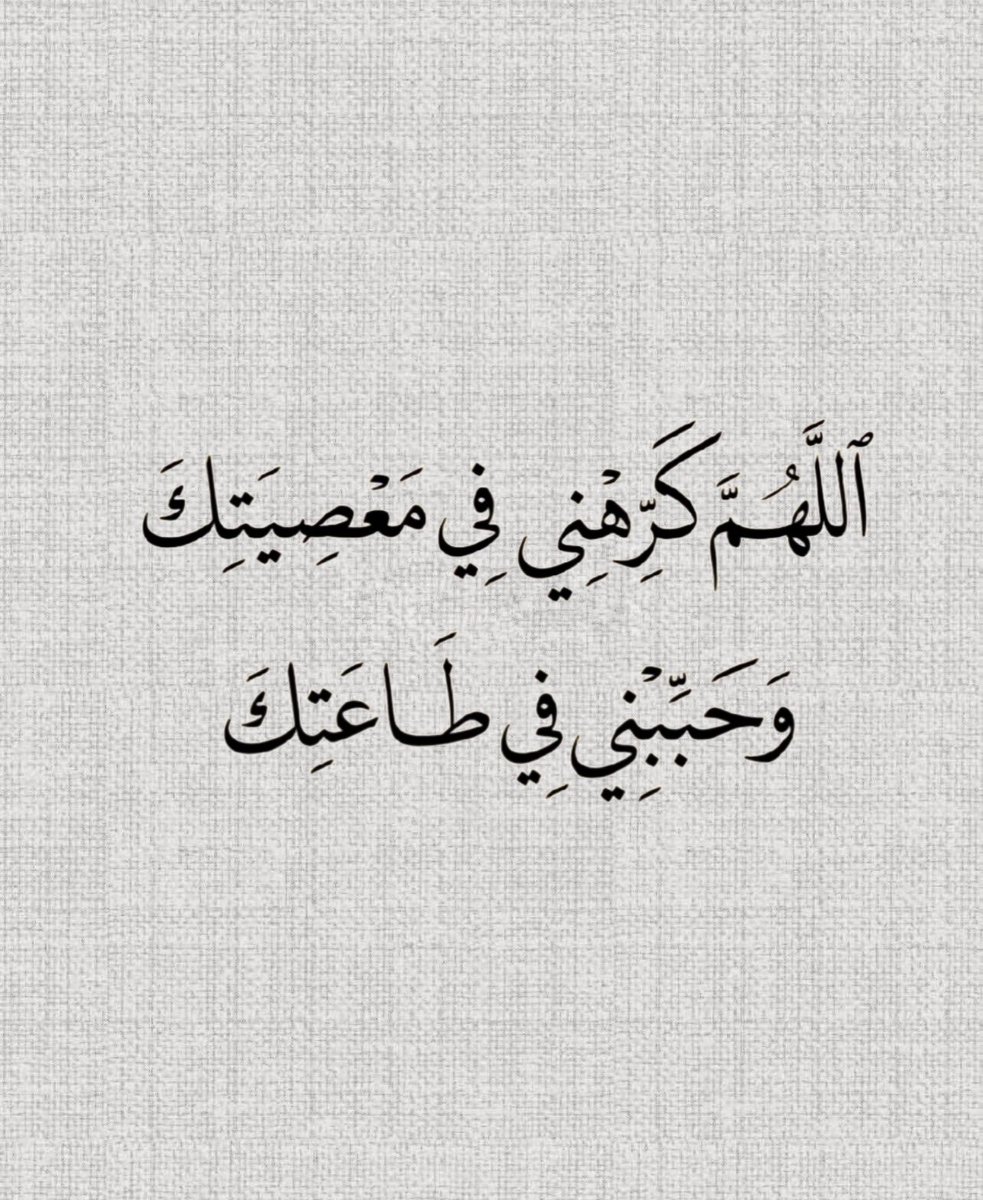 ٱللَّهُمَّ كَرِّهْنِي فِي مَعْصِيَتِكَ
وَحَبِّبْنِي فِي طَاعَتِكَ